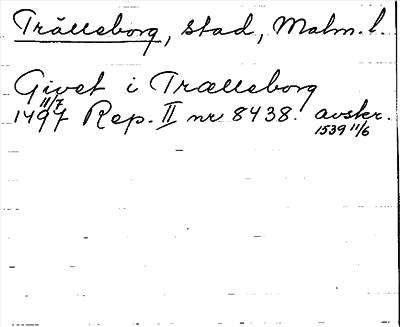 Trälleborg, stad, Malm. l.
Givet i Trælleborg
1497 11/7 Rep. II nr 8438. avskr.
1539 11/6